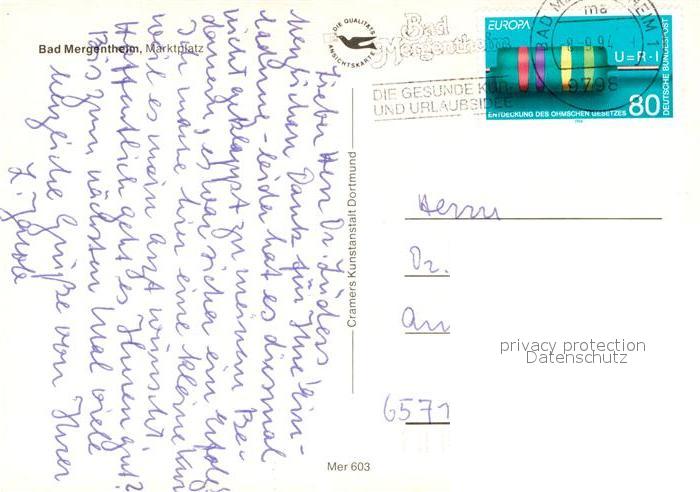 Bad Mergentheim, Marktplatz
DIE QUALITÄTS
ANSICHTSKARTE
Bad
Mergentheim
DIE GESUNDE KUR-
UND URLAUBSIDEE
BAD MERGENTHEIM 1
ma
-8.-9.94.-
9798
EUROPA
U=R·I
ENTDECKUNG DES OHMSCHEN GESETZES
80
DEUTSCHE BUNDESPOST
1994
Lieber Herr Dr. Lüders
herzlichen Dank für Ihre Ein-
ladung - leider hat es diesmal
nicht geklappt zu meinem Be-
dauern, es war sicher ein
Ich mache hier eine kleine Kur
weil es mein Arzt wünscht
Hoffentlich geht es Ihnen gut?
Bis zum nächsten Mal viele
herzliche Grüße von Ihrer
Cramers Kunstanstalt Dortmund
Herrn
Dr.
An
6571
privacy protection
Datenschutz
Mer 603